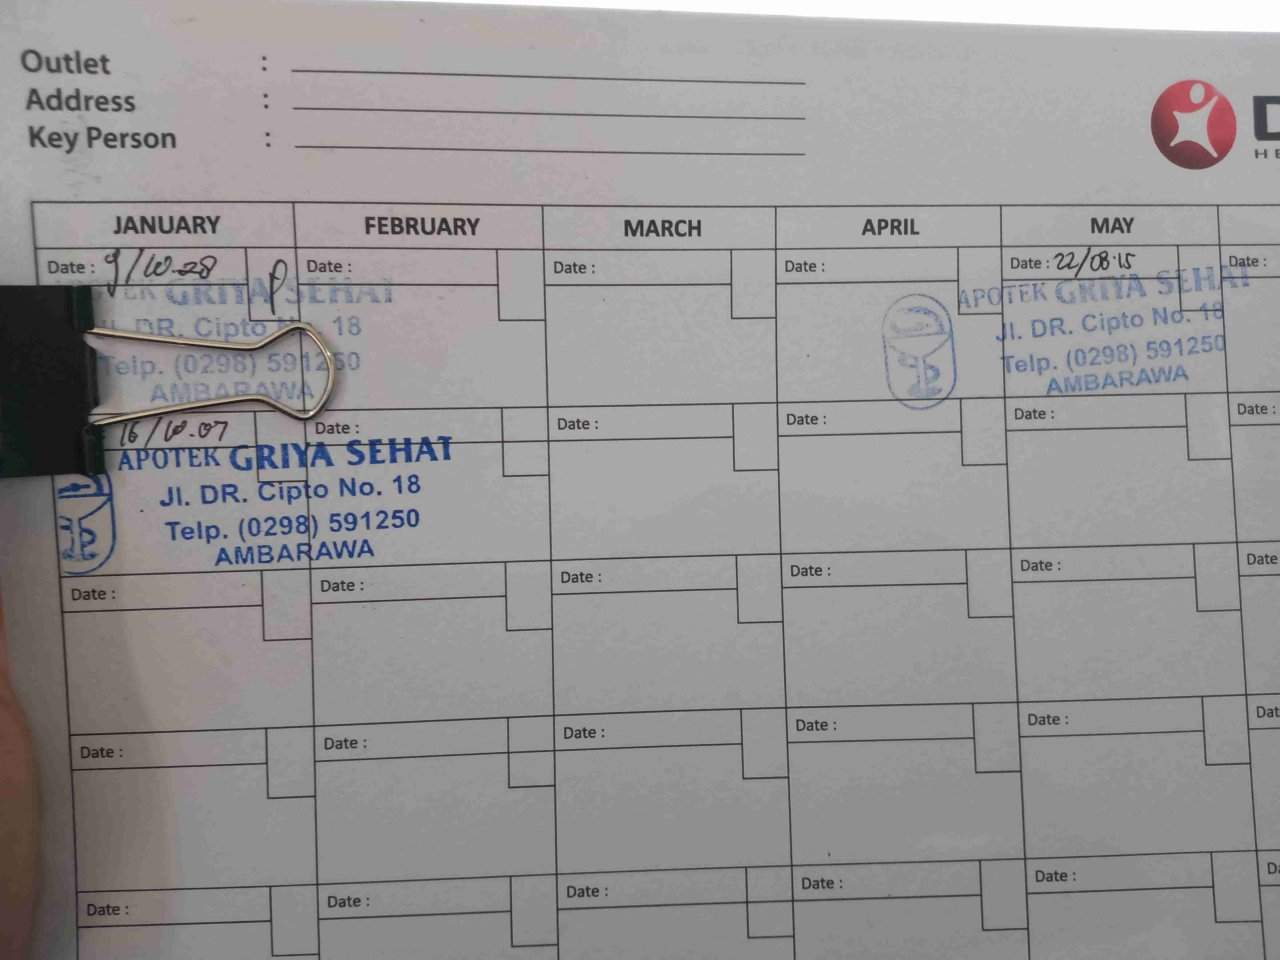 Outlet :
Address :
Key Person :
D
HE
JANUARY FEBRUARY MARCH APRIL MAY
Date : 9/10.28 P Date : Date : Date : Date : 22/08.15 Date :
APOTEK GRIYA SEHAT
Jl. DR. Cipto No. 18
Telp. (0298) 591250
AMBARAWA
APOTEK GRIYA SEHAT
Jl. DR. Cipto No. 18
Telp. (0298) 591250
AMBARAWA
16/10.07 Date : Date : Date : Date : Date :
APOTEK GRIYA SEHAT
Jl. DR. Cipto No. 18
Telp. (0298) 591250
AMBARAWA
Date : Date : Date : Date : Date : Date
Date : Date : Date : Date : Date : Dat
Date : Date : Date : Date : Date : Da